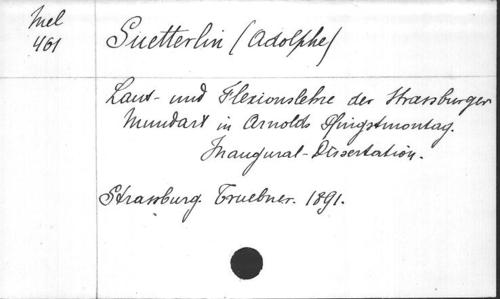 Mel
461
Suetterlin (Adolphe)
Laut- und Flexionslehre der Strassburger
Mundart in Arnolds Pfingstmontag.
Inaugural-Dissertation.
Strassburg. Truebner. 1891.